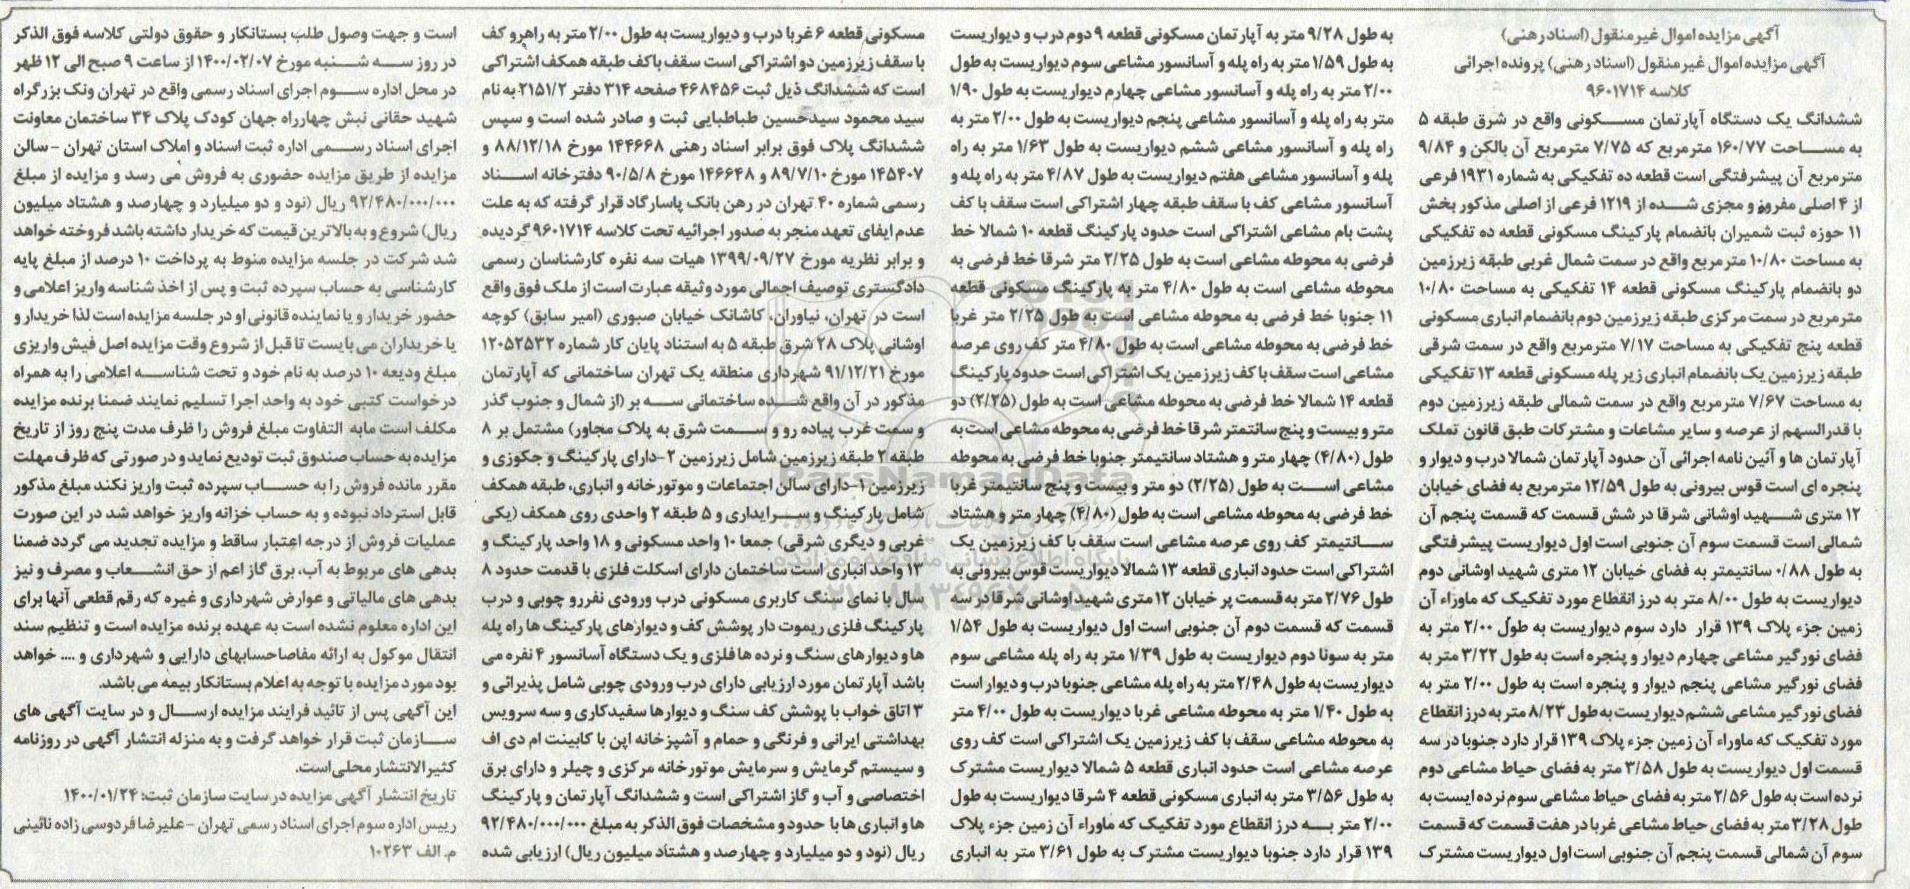 آگهی مزایده اموال غیرمنقول (اسناد رهنی)
آگهی مزایده اموال غیرمنقول (اسناد رهنی) پرونده اجرائی
کلاسه ۹۶۰۱۷۱۴
ششدانگ یک دستگاه آپارتمان مسکونی واقع در شرق طبقه ۵
به مساحت ۱۶۰/۷۷ مترمربع که ۷/۷۵ مترمربع آن بالکن و ۹/۸۴
مترمربع آن پیشرفتگی است قطعه ده تفکیکی به شماره ۱۹۳۱ فرعی
از ۴ اصلی مفروز و مجزی شده از ۱۲۱۹ فرعی از اصلی مذکور بخش
۱۱ حوزه ثبت شمیران بانضمام پارکینگ مسکونی قطعه ده تفکیکی
به مساحت ۱۰/۸۰ مترمربع واقع در سمت شمال غربی طبقه زیرزمین
دو بانضمام پارکینگ مسکونی قطعه ۱۴ تفکیکی به مساحت ۱۰/۸۰
مترمربع در سمت مرکزی طبقه زیرزمین دوم بانضمام انباری مسکونی
قطعه پنج تفکیکی به مساحت ۷/۱۷ مترمربع واقع در سمت شرقی
طبقه زیرزمین یک بانضمام انباری زیر پله مسکونی قطعه ۱۳ تفکیکی
به مساحت ۷/۶۷ مترمربع واقع در سمت شمالی طبقه زیرزمین دوم
با قدرالسهم از عرصه و سایر مشاعات و مشترکات طبق قانون تملک
آپارتمان ها و آئین نامه اجرائی آن حدود آپارتمان شمالا درب و دیوار و
پنجره ای است قوس بیرونی به طول ۱۲/۵۹ مترمربع به فضای خیابان
۱۲ متری شهید اوشانی شرقا در شش قسمت که قسمت پنجم آن
شمالی است قسمت سوم آن جنوبی است اول دیواریست پیشرفتگی
به طول ۰/۸۸ سانتیمتر به فضای خیابان ۱۲ متری شهید اوشانی دوم
دیواریست به طول ۸/۰۰ متر به درز انقطاع مورد تفکیک که ماوراء آن
زمین جزء پلاک ۱۳۹ قرار دارد سوم دیواریست به طول ۲/۰۰ متر به
فضای نورگیر مشاعی چهارم دیوار و پنجره است به طول ۳/۲۲ متر به
فضای نورگیر مشاعی پنجم دیوار و پنجره است به طول ۲/۰۰ متر به
فضای نورگیر مشاعی ششم دیواریست به طول ۸/۲۳ متر به درز انقطاع
مورد تفکیک که ماوراء آن زمین جزء پلاک ۱۳۹ قرار دارد جنوبا در سه
قسمت اول دیواریست به طول ۳/۵۸ متر به فضای حیاط مشاعی دوم
نرده است به طول ۲/۵۶ متر به فضای حیاط مشاعی سوم نرده ایست به
طول ۳/۲۸ متر به فضای حیاط مشاعی غربا در هفت قسمت که قسمت
سوم آن شمالی قسمت پنجم آن جنوبی است اول دیواریست مشترک
به طول ۹/۲۸ متر به آپارتمان مسکونی قطعه ۹ دوم درب و دیواریست
به طول ۱/۵۹ متر به راه پله و آسانسور مشاعی سوم دیواریست به طول
۲/۰۰ متر به راه پله و آسانسور مشاعی چهارم دیواریست به طول ۱/۹۰
متر به راه پله و آسانسور مشاعی پنجم دیواریست به طول ۲/۰۰ متر به
راه پله و آسانسور مشاعی ششم دیواریست به طول ۱/۶۳ متر به راه
پله و آسانسور مشاعی هفتم دیواریست به طول ۴/۸۷ متر به راه پله و
آسانسور مشاعی کف با سقف طبقه چهار اشتراکی است سقف با کف
پشت بام مشاعی اشتراکی است حدود پارکینگ قطعه ۱۰ شمالا خط
فرضی به محوطه مشاعی است به طول ۲/۲۵ متر شرقا خط فرضی به
محوطه مشاعی است به طول ۴/۸۰ متر به پارکینگ مسکونی قطعه
۱۱ جنوبا خط فرضی به محوطه مشاعی است به طول ۲/۲۵ متر غربا
خط فرضی به محوطه مشاعی است به طول ۴/۸۰ متر کف روی عرصه
مشاعی است سقف با کف زیرزمین یک اشتراکی است حدود پارکینگ
قطعه ۱۴ شمالا خط فرضی به محوطه مشاعی است به طول (۲/۲۵) دو
متر و بیست و پنج سانتمتر شرقا خط فرضی به محوطه مشاعی است به
طول (۴/۸۰) چهار متر و هشتاد سانتیمتر جنوبا خط فرضی به محوطه
مشاعی است به طول (۲/۲۵) دو متر و بیست و پنج سانتیمتر غربا
خط فرضی به محوطه مشاعی است به طول (۴/۸۰) چهار متر و هشتاد
سانتیمتر کف روی عرصه مشاعی است سقف با کف زیرزمین یک
اشتراکی است حدود انباری قطعه ۱۳ شمالا دیواریست قوس بیرونی به
طول ۲/۷۶ متر به قسمت پر خیابان ۱۲ متری شهید اوشانی شرقا در سه
قسمت که قسمت دوم آن جنوبی است اول دیواریست به طول ۱/۵۴
متر به سونا دوم دیواریست به طول ۱/۳۹ متر به راه پله مشاعی سوم
دیواریست به طول ۲/۴۸ متر به راه پله مشاعی جنوبا درب و دیوار است
به طول ۱/۴۰ متر به محوطه مشاعی غربا دیواریست به طول ۴/۰۰ متر
به محوطه مشاعی سقف با کف زیرزمین یک اشتراکی است کف روی
عرصه مشاعی است حدود انباری قطعه ۵ شمالا دیواریست مشترک
به طول ۳/۵۶ متر به انباری مسکونی قطعه ۴ شرقا دیواریست به طول
۲/۰۰ متر به درز انقطاع مورد تفکیک که ماوراء آن زمین جزء پلاک
۱۳۹ قرار دارد جنوبا دیواریست مشترک به طول ۳/۶۱ متر به انباری
مسکونی قطعه ۶ غربا درب و دیواریست به طول ۲/۰۰ متر به راهرو کف
با سقف زیرزمین دو اشتراکی است سقف با کف طبقه همکف اشتراکی
است که ششدانگ ذیل ثبت ۴۶۸۴۵۶ صفحه ۳۱۴ دفتر ۲۱۵۱/۲ به نام
سید محمود سیدحسین طباطبایی ثبت و صادر شده است و سپس
ششدانگ پلاک فوق برابر اسناد رهنی ۱۴۴۶۶۸ مورخ ۸۸/۱۲/۱۸ و
۱۴۵۴۰۷ مورخ ۸۹/۷/۱۰ و ۱۴۶۶۴۸ مورخ ۹۰/۵/۸ دفترخانه اسناد
رسمی شماره ۴۰ تهران در رهن بانک پاسارگاد قرار گرفته که به علت
عدم ایفای تعهد منجر به صدور اجرائیه تحت کلاسه ۹۶۰۱۷۱۴ گردیده
و برابر نظریه مورخ ۱۳۹۹/۰۹/۲۷ هیات سه نفره کارشناسان رسمی
دادگستری توصیف اجمالی مورد وثیقه عبارت است از ملک فوق واقع
است در تهران، نیاوران، کاشانک خیابان صبوری (امیر سابق) کوچه
اوشانی پلاک ۲۸ شرق طبقه ۵ به استناد پایان کار شماره ۱۲۰۵۲۵۳۲
مورخ ۹۱/۱۲/۲۱ شهرداری منطقه یک تهران ساختمانی که آپارتمان
مذکور در آن واقع شده ساختمانی سه بر (از شمال و جنوب گذر
و سمت غرب پیاده رو و سمت شرق به پلاک مجاور) مشتمل بر ۸
طبقه ۲ طبقه زیرزمین شامل زیرزمین ۲-دارای پارکینگ و جکوزی و
زیرزمین ۱-دارای سالن اجتماعات و موتورخانه و انباری، طبقه همکف
شامل پارکینگ و سرایداری و ۵ طبقه ۲ واحدی روی همکف (یکی
غربی و دیگری شرقی) جمعا ۱۰ واحد مسکونی و ۱۸ واحد پارکینگ و
۱۳ واحد انباری است ساختمان دارای اسکلت فلزی با قدمت حدود ۸
سال با نمای سنگ کاربری مسکونی درب ورودی نفررو چوبی و درب
پارکینگ فلزی ریموت دار پوشش کف و دیوارهای پارکینگ ها راه پله
ها و دیوارهای سنگ و نرده ها فلزی و یک دستگاه آسانسور ۴ نفره می
باشد آپارتمان مورد ارزیابی دارای درب ورودی چوبی شامل پذیرائی و
۳ اتاق خواب با پوشش کف سنگ و دیوارها سفیدکاری و سه سرویس
بهداشتی ایرانی و فرنگی و حمام و آشپزخانه اپن با کابینت ام دی اف
و سیستم گرمایش و سرمایش موتورخانه مرکزی و چیلر و دارای برق
اختصاصی و آب و گاز اشتراکی است و ششدانگ آپارتمان و پارکینگ
ها و انباری ها با حدود و مشخصات فوق الذکر به مبلغ ۹۲/۴۸۰/۰۰۰/۰۰۰
ریال (نود و دو میلیارد و چهارصد و هشتاد میلیون ریال) ارزیابی شده
است و جهت وصول طلب بستانکار و حقوق دولتی کلاسه فوق الذکر
در روز سه شنبه مورخ ۱۴۰۰/۰۲/۰۷ از ساعت ۹ صبح الی ۱۲ ظهر
در محل اداره سوم اجرای اسناد رسمی واقع در تهران ونک بزرگراه
شهید حقانی نبش چهارراه جهان کودک پلاک ۳۴ ساختمان معاونت
اجرای اسناد رسمی اداره ثبت اسناد و املاک استان تهران -سالن
مزایده از طریق مزایده حضوری به فروش می رسد و مزایده از مبلغ
۹۲/۴۸۰/۰۰۰/۰۰۰ ریال (نود و دو میلیارد و چهارصد و هشتاد میلیون
ریال) شروع و به بالاترین قیمت که خریدار داشته باشد فروخته خواهد
شد شرکت در جلسه مزایده منوط به پرداخت ۱۰ درصد از مبلغ پایه
کارشناسی به حساب سپرده ثبت و پس از اخذ شناسه واریز اعلامی و
حضور خریدار و یا نماینده قانونی او در جلسه مزایده است لذا خریدار و
یا خریداران می بایست تا قبل از شروع وقت مزایده اصل فیش واریزی
مبلغ ودیعه ۱۰ درصد به نام خود و تحت شناسه اعلامی را به همراه
درخواست کتبی خود به واحد اجرا تسلیم نمایند ضمنا برنده مزایده
مکلف است مابه التفاوت مبلغ فروش را ظرف مدت پنج روز از تاریخ
مزایده به حساب صندوق ثبت تودیع نماید و در صورتی که ظرف مهلت
مقرر مانده فروش را به حساب سپرده ثبت واریز نکند مبلغ مذکور
قابل استرداد نبوده و به حساب خزانه واریز خواهد شد در این صورت
عملیات فروش از درجه اعتبار ساقط و مزایده تجدید می گردد ضمنا
بدهی های مربوط به آب، برق گاز اعم از حق انشعاب و مصرف و نیز
بدهی های مالیاتی و عوارض شهرداری و غیره که رقم قطعی آنها برای
این اداره معلوم نشده است به عهده برنده مزایده است و تنظیم سند
انتقال موکول به ارائه مفاصاحسابهای دارایی و شهرداری و .... خواهد
بود مورد مزایده با توجه به اعلام بستانکار بیمه می باشد.
این آگهی پس از تائید فرایند مزایده ارسال و در سایت آگهی های
سازمان ثبت قرار خواهد گرفت و به منزله انتشار آگهی در روزنامه
کثیرالانتشار محلی است.
تاریخ انتشار آگهی مزایده در سایت سازمان ثبت: ۱۴۰۰/۰۱/۲۴
رییس اداره سوم اجرای اسناد رسمی تهران -علیرضا فردوسی زاده نائینی
م. الف ۱۰۲۶۳
ParsNamadData